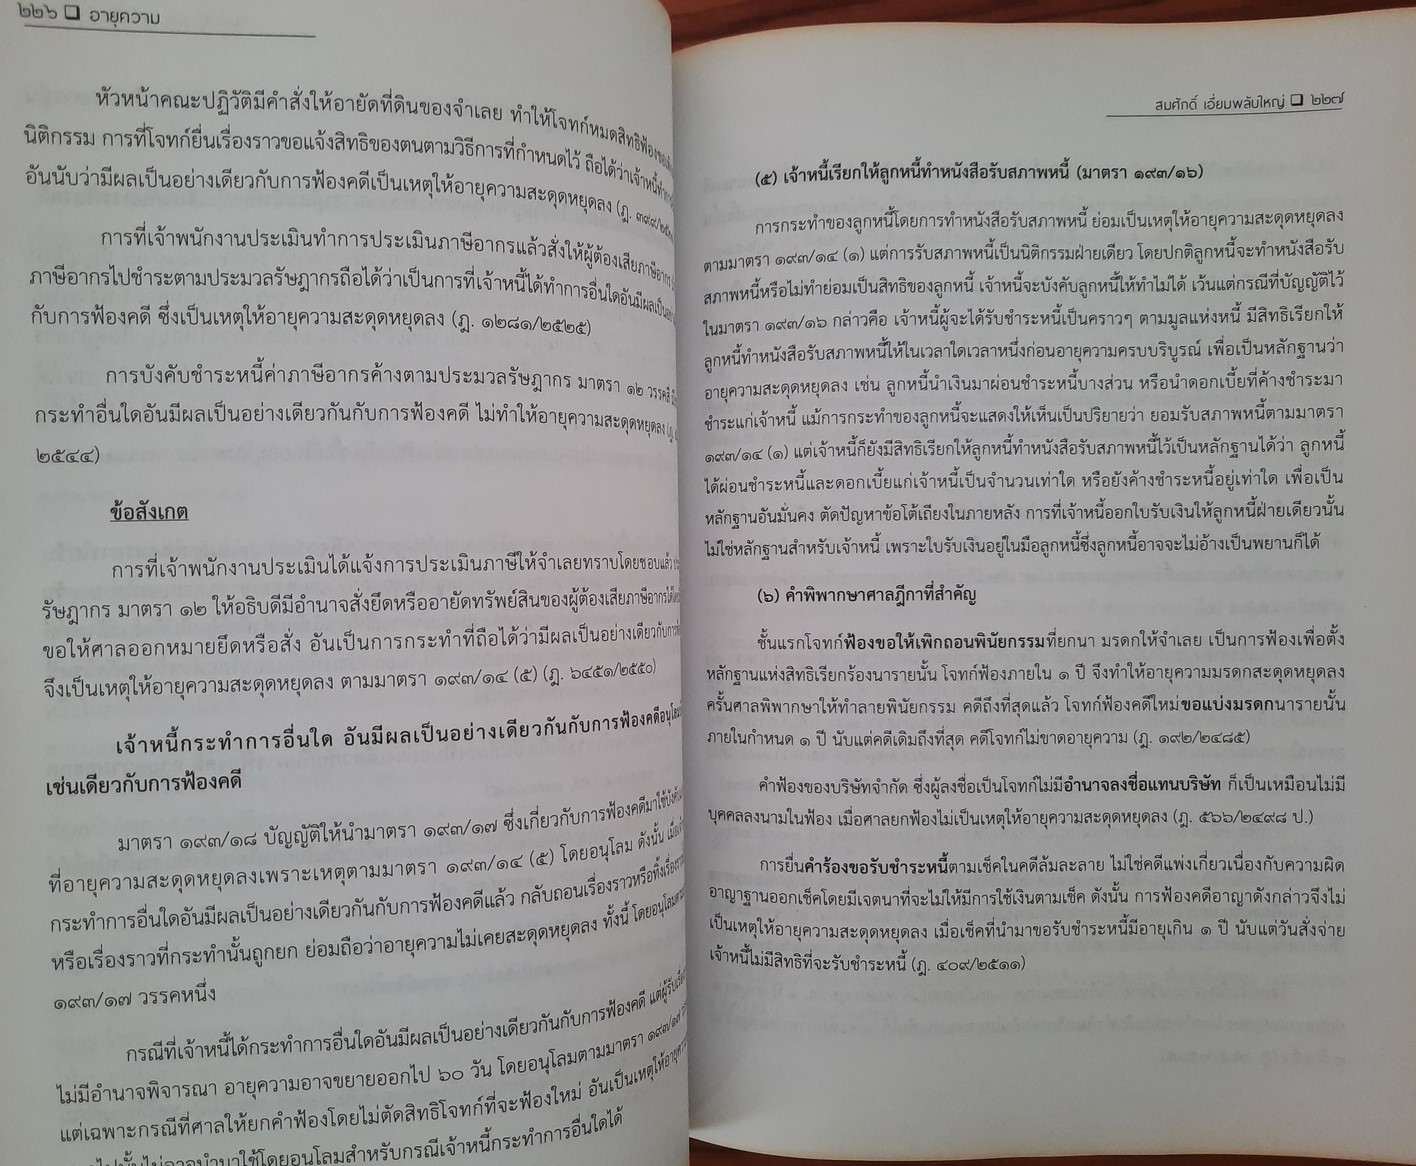 ๒๒๖ ❑ อายุความ
หัวหน้าคณะปฏิวัติมีคำสั่งให้อายัดที่ดินของจำเลย ทำให้โจทก์หมดสิทธิฟ้อง
นิติกรรม การที่โจทก์ยื่นเรื่องราวขอแจ้งสิทธิของตนตามวิธีการที่กำหนดไว้ ถือได้ว่าเจ้าหนี้
อันนับว่ามีผลเป็นอย่างเดียวกับการฟ้องคดีเป็นเหตุให้อายุความสะดุดหยุดลง (ฎ.
การที่เจ้าพนักงานประเมินทำการประเมินภาษีอากรแล้วสั่งให้ผู้ต้องเสียภาษีอากร
ภาษีอากรไปชำระตามประมวลรัษฎากรถือได้ว่าเป็นการที่เจ้าหนี้ได้ทำการอื่นใดอันมีผลเป็น
กับการฟ้องคดี ซึ่งเป็นเหตุให้อายุความสะดุดหยุดลง (ฎ. ๑๒๘๑/๒๕๒๕)
การบังคับชำระหนี้ค่าภาษีอากรค้างตามประมวลรัษฎากร มาตรา ๑๒ วรรคสี่
กระทำอื่นใดอันมีผลเป็นอย่างเดียวกันกับการฟ้องคดี ไม่ทำให้อายุความสะดุดหยุดลง
๒๕๔๔)
ข้อสังเกต
การที่เจ้าพนักงานประเมินได้แจ้งการประเมินภาษีให้จำเลยทราบโดยชอบแล้ว
รัษฎากร มาตรา ๑๒ ให้อธิบดีมีอำนาจสั่งยึดหรืออายัดทรัพย์สินของผู้ต้องเสียภาษีอากรได้
ขอให้ศาลออกหมายยึดหรือสั่ง อันเป็นการกระทำที่ถือได้ว่ามีผลเป็นอย่างเดียวกับการ
จึงเป็นเหตุให้อายุความสะดุดหยุดลง ตามมาตรา ๑๙๓/๑๔ (๕) (ฎ. ๖๔๕๑/๒๕๕๐)
เจ้าหนี้กระทำการอื่นใด อันมีผลเป็นอย่างเดียวกันกับการฟ้องคดี
เช่นเดียวกับการฟ้องคดี
มาตรา ๑๙๓/๑๘ บัญญัติให้นำมาตรา ๑๙๓/๑๗ ซึ่งเกี่ยวกับการฟ้องคดีมาใช้
ที่อายุความสะดุดหยุดลงเพราะเหตุตามมาตรา ๑๙๓/๑๔ (๕) โดยอนุโลม ดังนั้น
กระทำการอื่นใดอันมีผลเป็นอย่างเดียวกันกับการฟ้องคดีแล้ว กลับถอนเรื่องราวหรือทิ้ง
หรือเรื่องราวที่กระทำนั้นถูกยก ย่อมถือว่าอายุความไม่เคยสะดุดหยุดลง ทั้งนี้ โดยอนุโลม
๑๙๓/๑๗ วรรคหนึ่ง
กรณีที่เจ้าหนี้ได้กระทำการอื่นใดอันมีผลเป็นอย่างเดียวกันกับการฟ้องคดี แต่ผู้รับ
ไม่มีอำนาจพิจารณา อายุความอาจขยายออกไป ๖๐ วัน โดยอนุโลมตามมาตรา ๑๙๓/๑๗
แต่เฉพาะกรณีที่ศาลให้ยกคำฟ้องโดยไม่ตัดสิทธิโจทก์ที่จะฟ้องใหม่ อันเป็นเหตุให้อายุความ
ไม่อาจนำมาใช้โดยอนุโลมสำหรับกรณีเจ้าหนี้กระทำการอื่นใดได้
สมศักดิ์ เอี่ยมพลับใหญ่ ❑ ๒๒๗
(๕) เจ้าหนี้เรียกให้ลูกหนี้ทำหนังสือรับสภาพหนี้ (มาตรา ๑๙๓/๑๖)
การกระทำของลูกหนี้โดยการทำหนังสือรับสภาพหนี้ ย่อมเป็นเหตุให้อายุความสะดุดหยุดลง
ตามมาตรา ๑๙๓/๑๔ (๑) แต่การรับสภาพหนี้เป็นนิติกรรมฝ่ายเดียว โดยปกติลูกหนี้จะทำหนังสือรับ
สภาพหนี้หรือไม่ทำย่อมเป็นสิทธิของลูกหนี้ เจ้าหนี้จะบังคับลูกหนี้ให้ทำไม่ได้ เว้นแต่กรณีที่บัญญัติไว้
ในมาตรา ๑๙๓/๑๖ กล่าวคือ เจ้าหนี้ผู้จะได้รับชำระหนี้เป็นคราวๆ ตามมูลแห่งหนี้ มีสิทธิเรียกให้
ลูกหนี้ทำหนังสือรับสภาพหนี้ให้ในเวลาใดเวลาหนึ่งก่อนอายุความครบบริบูรณ์ เพื่อเป็นหลักฐานว่า
อายุความสะดุดหยุดลง เช่น ลูกหนี้นำเงินมาผ่อนชำระหนี้บางส่วน หรือนำดอกเบี้ยที่ค้างชำระมา
ชำระแก่เจ้าหนี้ แม้การกระทำของลูกหนี้จะแสดงให้เห็นเป็นปริยายว่า ยอมรับสภาพหนี้ตามมาตรา
๑๙๓/๑๔ (๑) แต่เจ้าหนี้ก็ยังมีสิทธิเรียกให้ลูกหนี้ทำหนังสือรับสภาพหนี้ไว้เป็นหลักฐานได้ว่า ลูกหนี้
ได้ผ่อนชำระหนี้และดอกเบี้ยแก่เจ้าหนี้เป็นจำนวนเท่าใด หรือยังค้างชำระหนี้อยู่เท่าใด เพื่อเป็น
หลักฐานอันมั่นคง ตัดปัญหาข้อโต้เถียงในภายหลัง การที่เจ้าหนี้ออกใบรับเงินให้ลูกหนี้ฝ่ายเดียวนั้น
ไม่ใช่หลักฐานสำหรับเจ้าหนี้ เพราะใบรับเงินอยู่ในมือลูกหนี้ซึ่งลูกหนี้อาจจะไม่อ้างเป็นพยานก็ได้
(๖) คำพิพากษาศาลฎีกาที่สำคัญ
ชั้นแรกโจทก์ฟ้องขอให้เพิกถอนพินัยกรรมที่ยกนา มรดกให้จำเลย เป็นการฟ้องเพื่อตั้ง
หลักฐานแห่งสิทธิเรียกร้องนารายนั้น โจทก์ฟ้องภายใน ๑ ปี จึงทำให้อายุความมรดกสะดุดหยุดลง
ครั้นศาลพิพากษาให้ทำลายพินัยกรรม คดีถึงที่สุดแล้ว โจทก์ฟ้องคดีใหม่ขอแบ่งมรดกนารายนั้น
ภายในกำหนด ๑ ปี นับแต่คดีเดิมถึงที่สุด คดีโจทก์ไม่ขาดอายุความ (ฎ. ๑๙๒/๒๔๘๕)
คำฟ้องของบริษัทจำกัด ซึ่งผู้ลงชื่อเป็นโจทก์ไม่มีอำนาจลงชื่อแทนบริษัท ก็เป็นเหมือนไม่มี
บุคคลลงนามในฟ้อง เมื่อศาลยกฟ้องไม่เป็นเหตุให้อายุความสะดุดหยุดลง (ฎ. ๕๖๖/๒๔๙๘ ป.)
การยื่นคำร้องขอรับชำระหนี้ตามเช็คในคดีล้มละลาย ไม่ใช่คดีแพ่งเกี่ยวเนื่องกับความผิด
อาญาฐานออกเช็คโดยมีเจตนาที่จะไม่ให้มีการใช้เงินตามเช็ค ดังนั้น การฟ้องคดีอาญาดังกล่าวจึงไม่
เป็นเหตุให้อายุความสะดุดหยุดลง เมื่อเช็คที่นำมาขอรับชำระหนี้มีอายุเกิน ๑ ปี นับแต่วันสั่งจ่าย
เจ้าหนี้ไม่มีสิทธิที่จะรับชำระหนี้ (ฎ. ๔๐๙/๒๕๑๑)